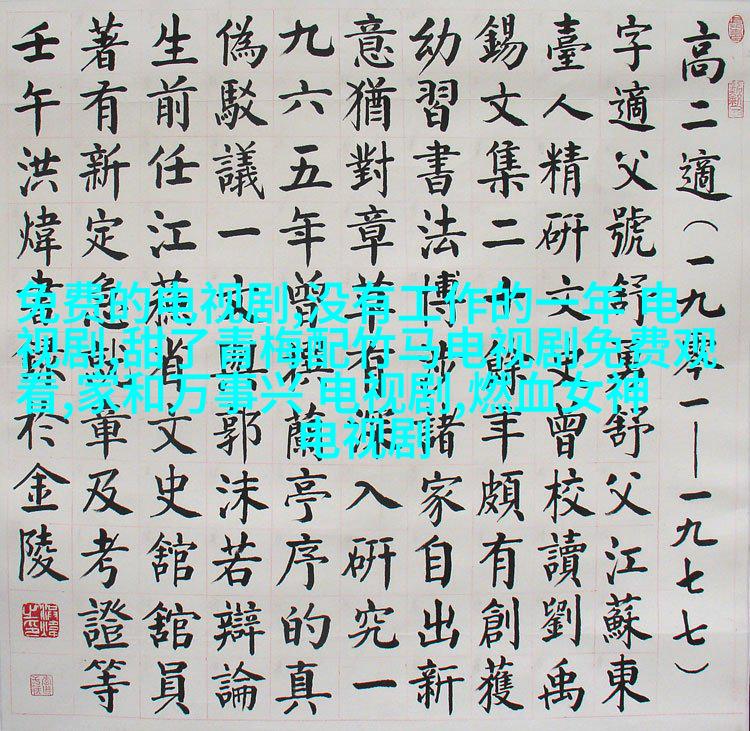 高二適（一九零一——一九七七）
字適父號舒鳧舒父江蘇東
臺人精研文史曾校讀劉禹
錫文集二十餘年頗有創獲
幼習書法博涉諸家自出新
意猶對章草有深入研究一
九六五年曾撰蘭亭序的真
偽駁議一文與郭沫若辯論
生前任江蘇省文史舘舘員
著有新定急就章及考證等
壬午洪煒書錄於金陵
免费的电视剧,没有工作的一年 电
视剧,甜了青梅配竹马电视剧免费观
看,家和万事兴 电视剧,燃血女神
电视剧